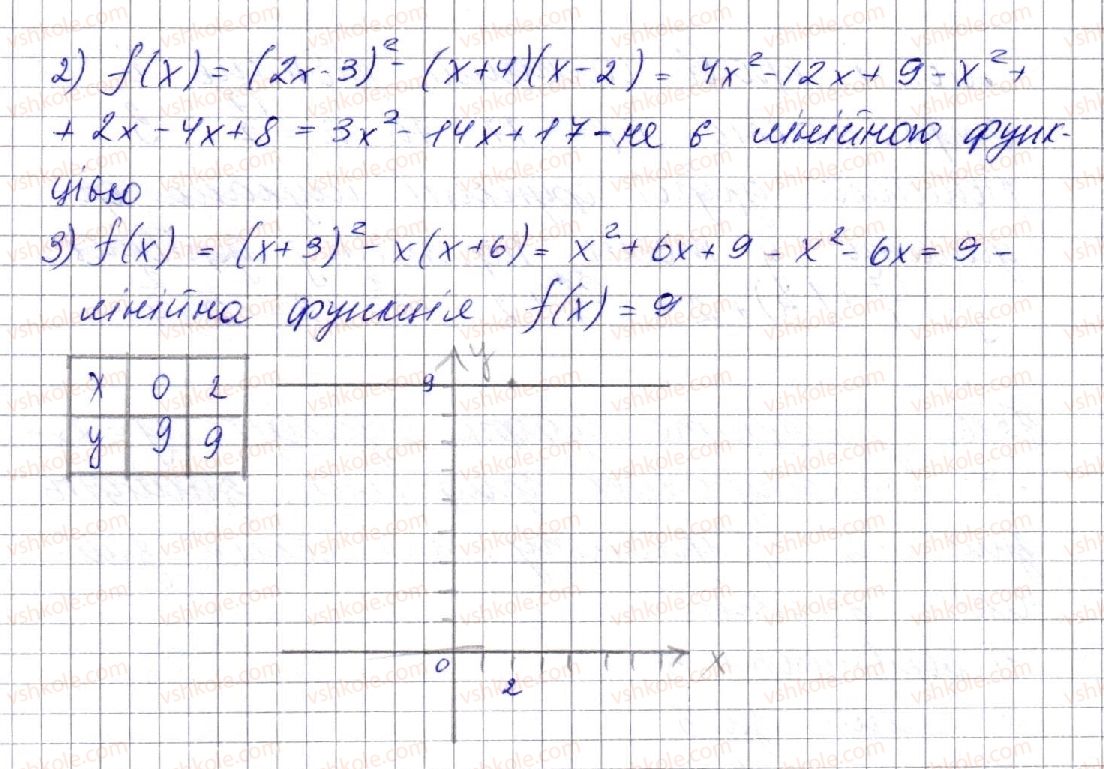 2) f(x) = (2x-3)² - (x+4)(x-2) = 4x² - 12x + 9 - x² +
+ 2x - 4x + 8 = 3x² - 14x + 17 - не є лінійною функ-
цією
3) f(x) = (x+3)² - x(x+6) = x² + 6x + 9 - x² - 6x = 9 -
лінійна функція f(x) = 9
y
9
x 0 2
y 9 9
0
x
2
vshkole.com